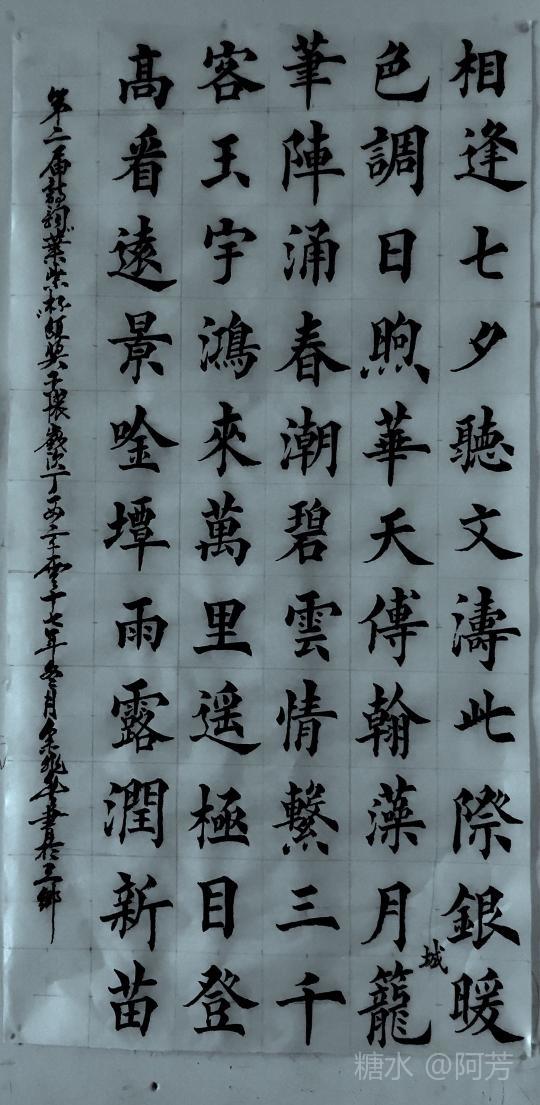 相逢七夕聽文濤此際銀暖
色調日煦華天傳翰藻月籠
城
筆陣涌春潮碧雲情繫三千
客玉宇鴻來萬里遥極目登
高看遠景唫壇雨露潤新苗
第二届詩詞 丁酉二零一七年冬月 書於 鄉
糖水 @阿芳